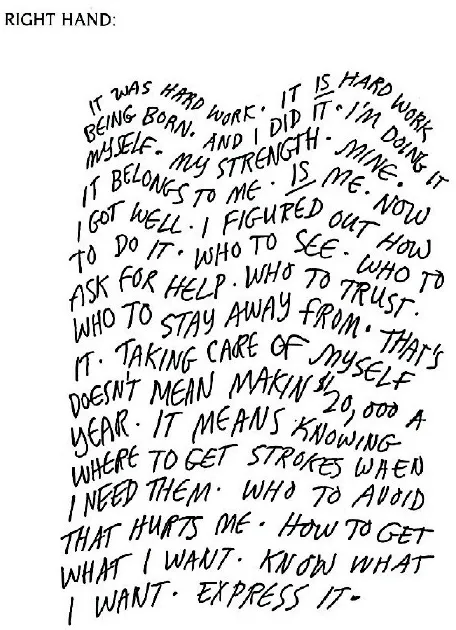 RIGHT HAND:
IT WAS HARD WORK. IT IS HARD WORK
BEING BORN. AND I DID IT. I'M DOING IT
MYSELF. MY STRENGTH. MINE.
IT BELONGS TO ME. IS ME. NOW
I GOT WELL. I FIGURED OUT HOW
TO DO IT. WHO TO SEE. WHO TO
ASK FOR HELP. WHO TO TRUST.
WHO TO STAY AWAY FROM. THAT'S
IT. TAKING CARE OF MYSELF
DOESN'T MEAN MAKIN $20,000 A
YEAR. IT MEANS KNOWING
WHERE TO GET STROKES WHEN
I NEED THEM. WHO TO AVOID
THAT HURTS ME. HOW TO GET
WHAT I WANT. KNOW WHAT
I WANT. EXPRESS IT.